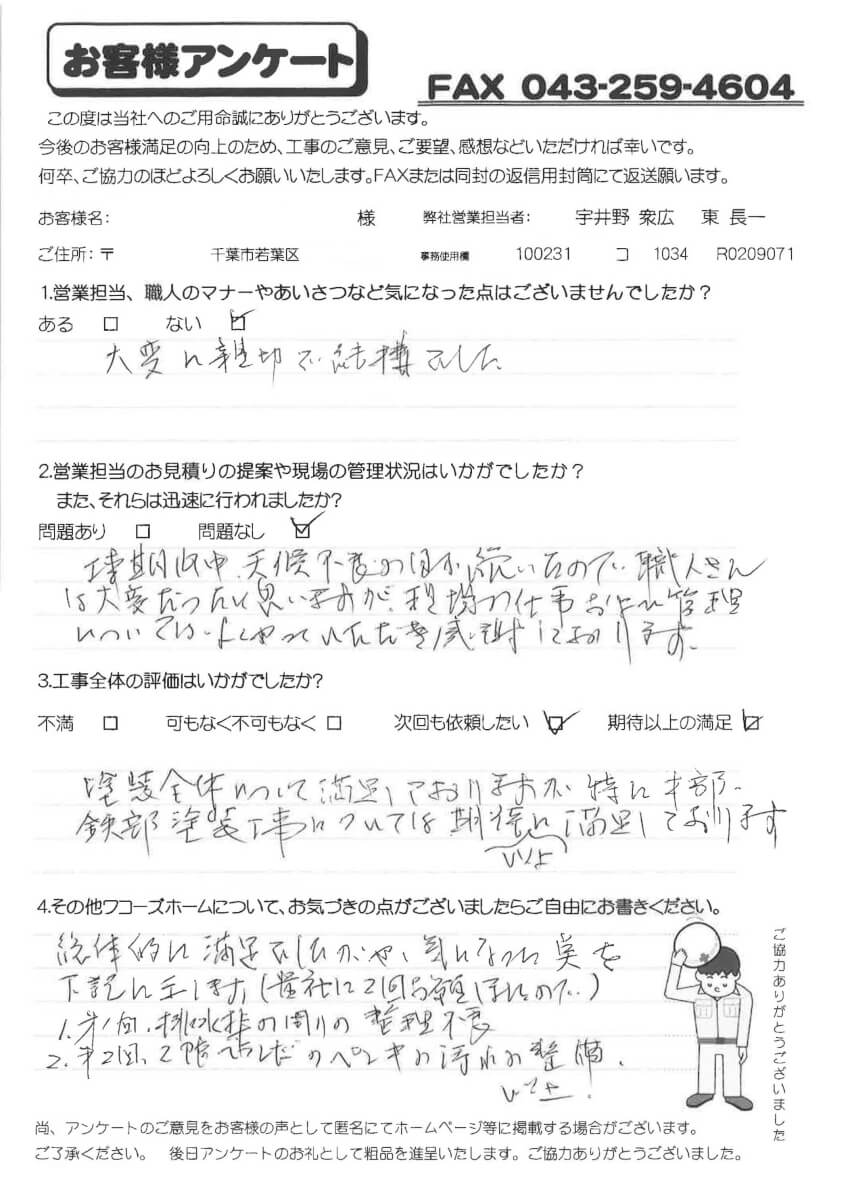 お客様アンケート
FAX 043-259-4604
この度は当社へのご用命誠にありがとうございます。
今後のお客様満足の向上のため、工事のご意見、ご要望、感想などいただければ幸いです。
何卒、ご協力のほどよろしくお願いいたします。FAXまたは同封の返信用封筒にて返送願います。
お客様名: 様 弊社営業担当者: 宇井野 衆広 東 長一
ご住所:〒 千葉市若葉区 事務使用欄 100231 コ 1034 R0209071
1.営業担当、職人のマナーやあいさつなど気になった点はございませんでしたか?
ある □ ない ☑
大変に親切で結構でした
2.営業担当のお見積りの提案や現場の管理状況はいかがでしたか?
また、それらは迅速に行われましたか?
問題あり □ 問題なし ☑
期间中、天候不良の日が続いたので、職人さん
は大変だったと思いますが、現場の仕事および管理
についてはよくやっていただき感謝しております。
3.工事全体の評価はいかがでしたか?
不満 □ 可もなく不可もなく □ 次回も依頼したい ☑ 期待以上の満足 ☑
塗装全体について満足しておりますが特に木部、
鉄部塗装工事については期待に満足しております
4.その他ワコーズホームについて、お気づきの点がございましたらご自由にお書きください。
総体的に満足でしたが、気になった点を
下記に (貴社に2回お願いしたので)
1. 第1回、排水 の周りの整理不良
2. 第2回、 のペンキの汚れの整備、
ご協力ありがとうございました
尚、アンケートのご意見をお客様の声として匿名にてホームページ等に掲載する場合がございます。
ご了承ください。 後日アンケートのお礼として粗品を進呈いたします。ご協力ありがとうございました。